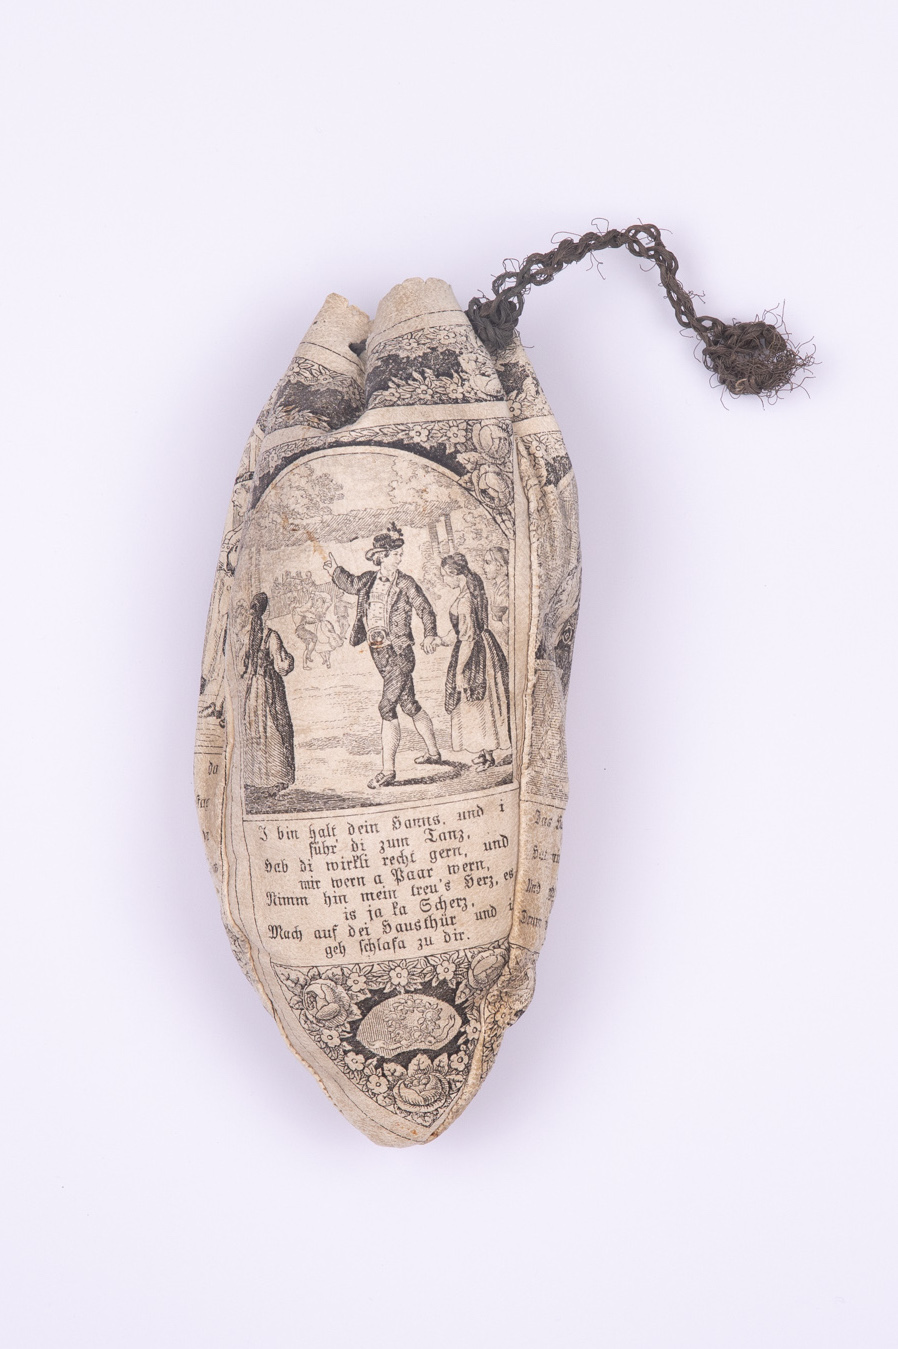 I bin halt dein Hanns, und i
führ' di zum Tanz,
Hab di wirkli recht gern, und
mir wern a Paar wern,
Nimm hin mein treu's Herz, es
is ja ka Scherz,
Mach auf dei Hausthür und i
geh schlafa zu dir.
du
Das